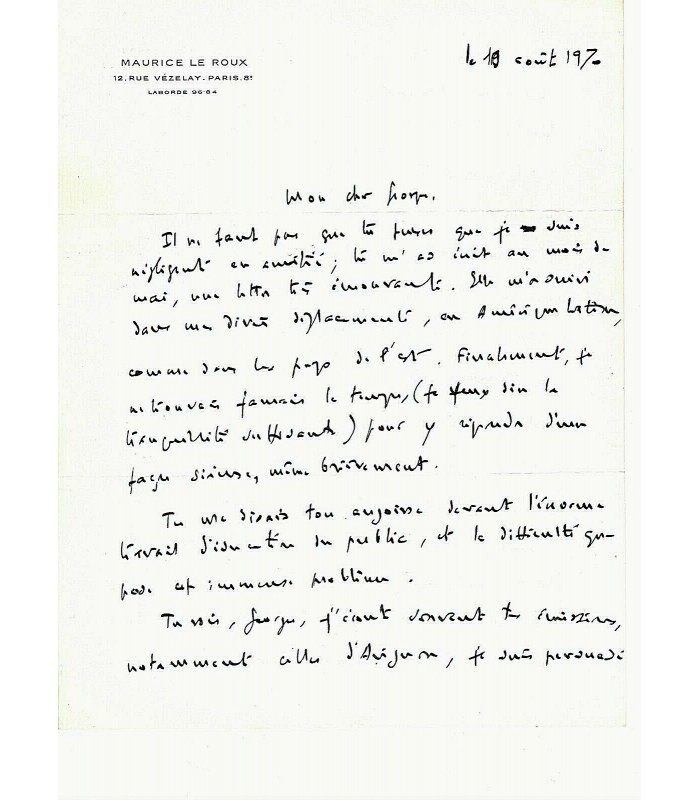 MAURICE LE ROUX
12, RUE VÉZELAY - PARIS. 8e
LABORDE 96-64
le 18 août 1970
Mon cher Georges,
Il ne faut pas que tu penses que je suis
négligent en amitié ; tu m'as écrit au mois de
mai, une lettre très émouvante. Elle m'a suivi
dans mes divers déplacements, en Amérique Latine,
comme dans les pays de l'est. Finalement, je
ne trouvais jamais le temps, (je veux dire la
tranquillité suffisante) pour y répondre d'une
façon sérieuse, même brièvement.
Tu me disais ton angoisse devant l'énorme
travail d'éducation du public, et la difficulté que
pose cet immense problème.
Tu sais, Georges, j'écoute souvent tes émissions,
notamment celles d'Avignon, je suis persuadé